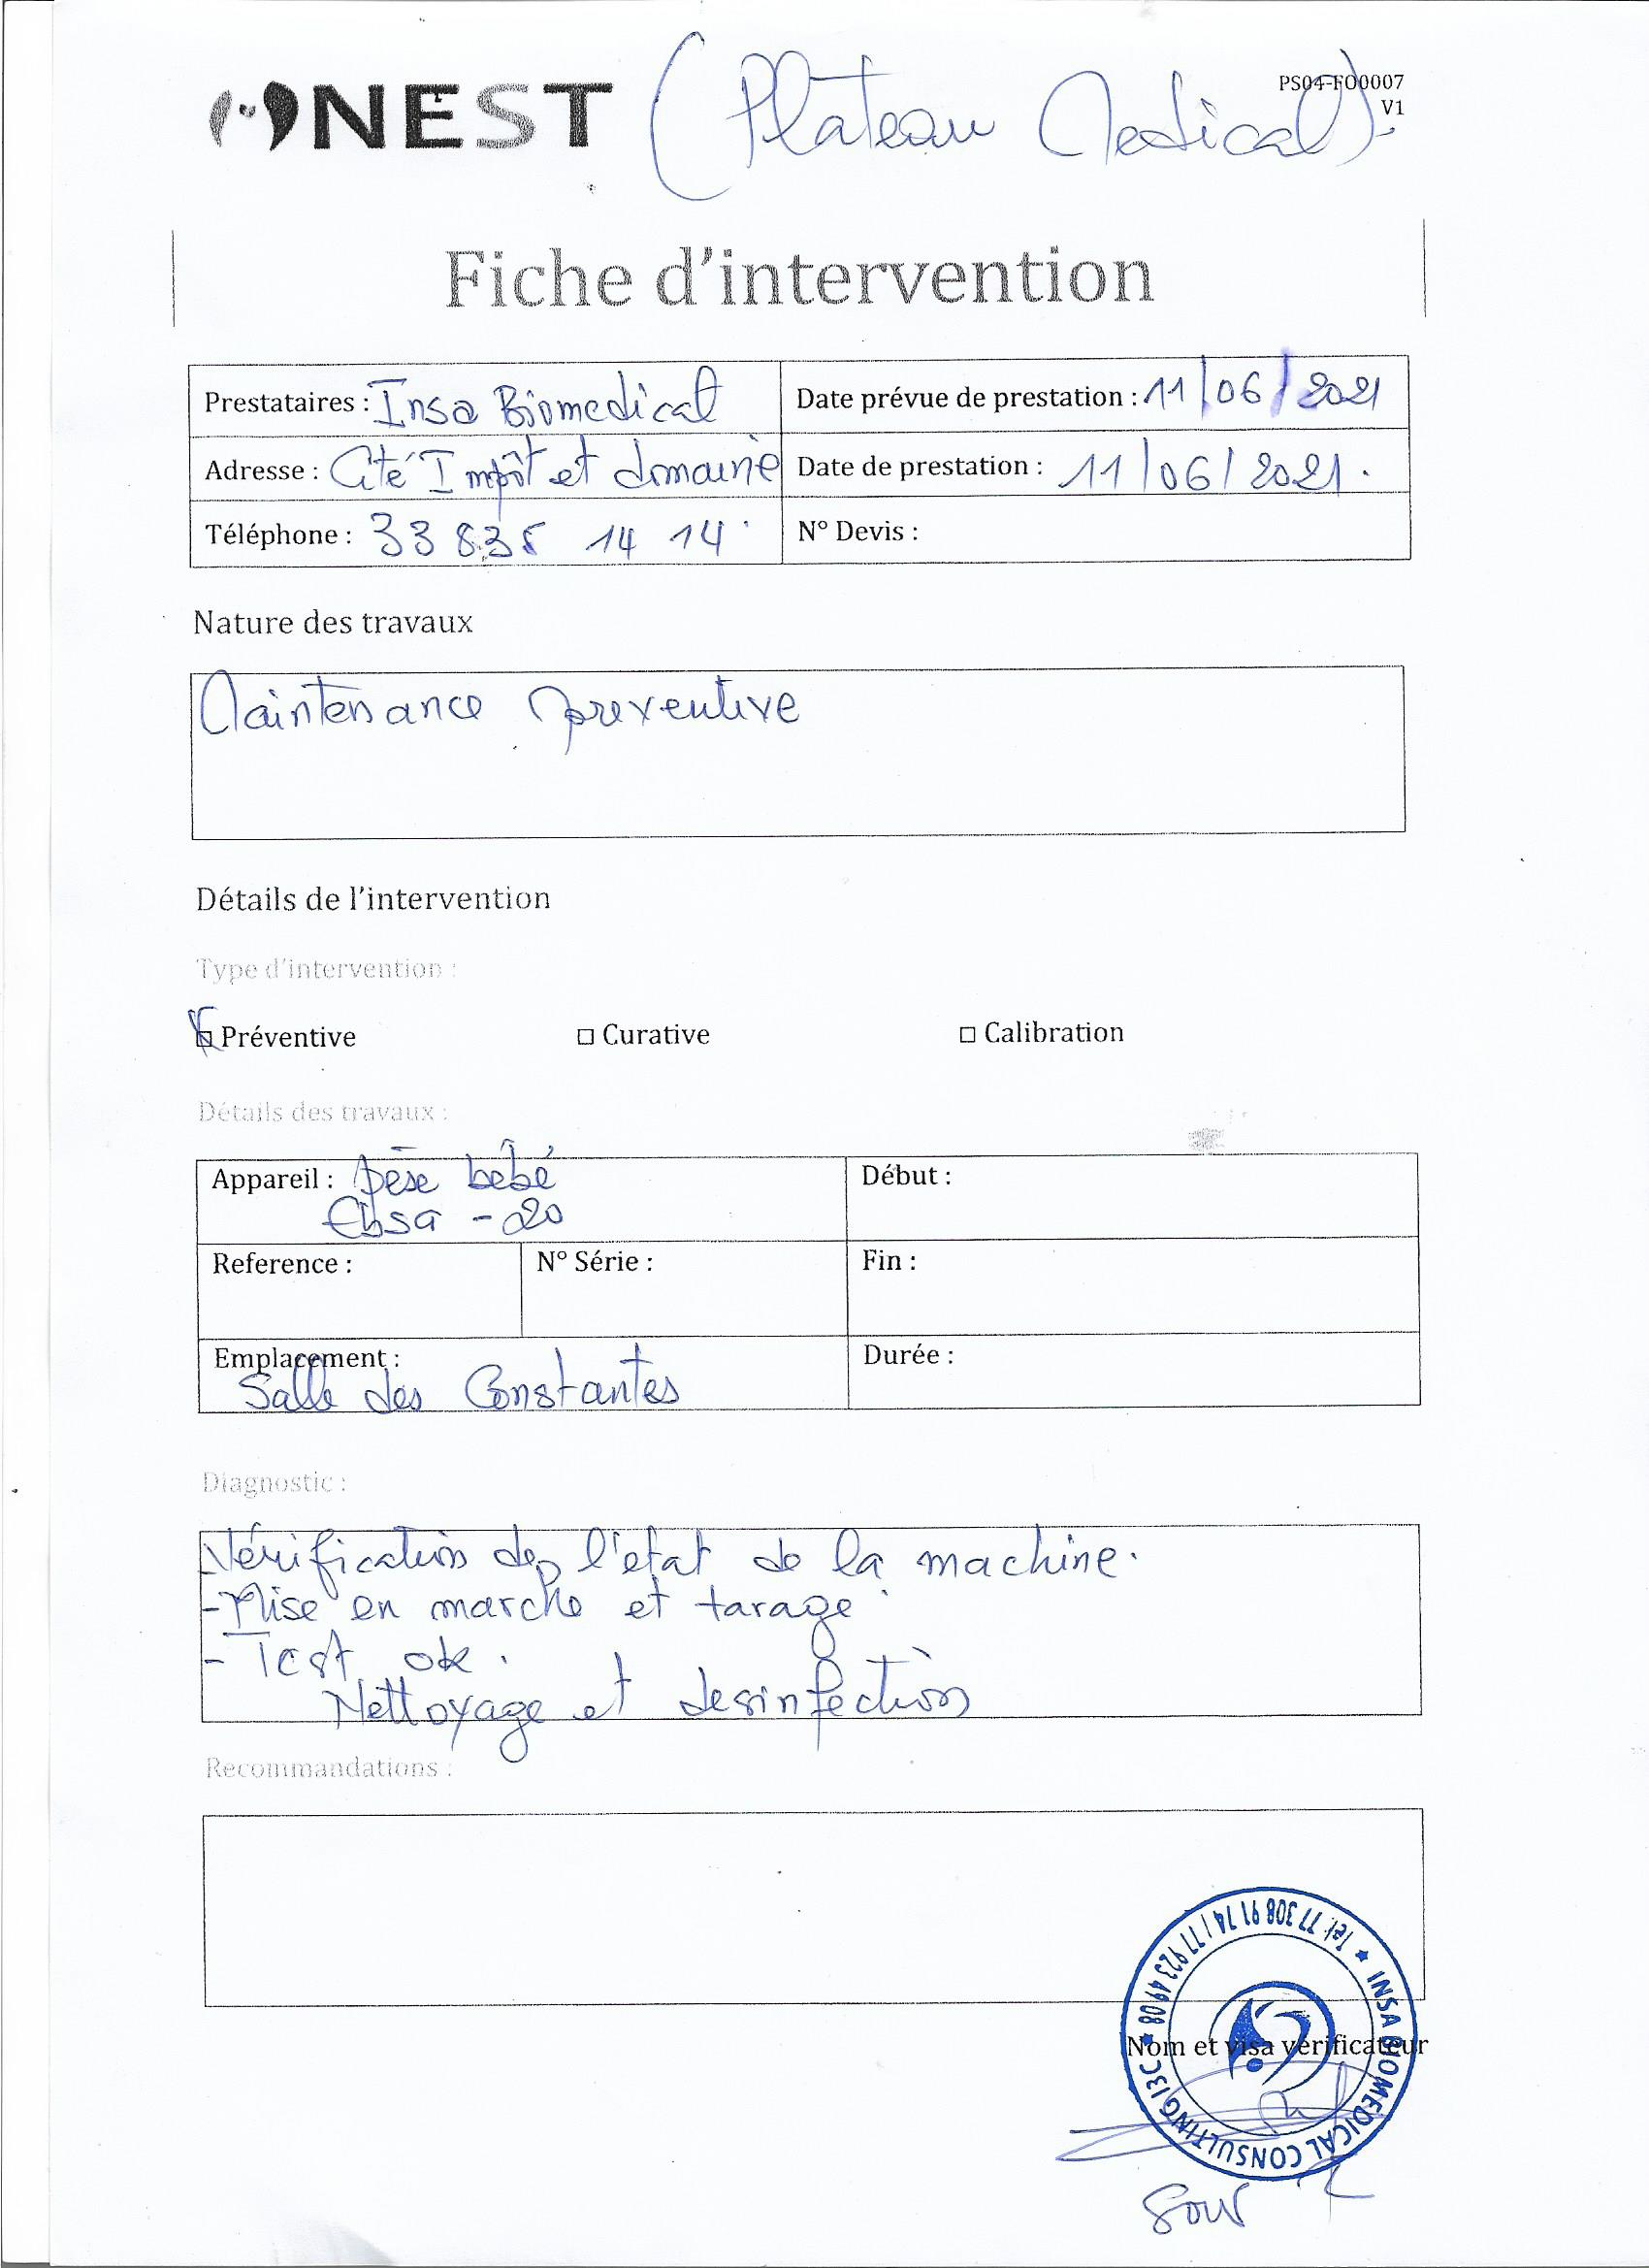 NEST (Plateau Medical)
PS04-FO0007
V1
Fiche d'intervention
Prestataires : Insa Biomedical
Date prévue de prestation : 11/06/2021
Adresse : Cité Impôt et domaine
Date de prestation : 11/06/2021.
Téléphone : 33 835 14 14
N° Devis :
Nature des travaux
Maintenance preventive
Détails de l'intervention
Type d'intervention :
Préventive
Curative
Calibration
Détails des travaux :
Appareil : pèse bébé
Ebsa - 20
Début :
Reference :
N° Série :
Fin :
Emplacement :
Salle des Constantes
Durée :
Diagnostic :
Vérification de l'etat de la machine.
- Mise en marche et tarage
- Test ok.
Nettoyage et desinfection
Recommandations :
Nom et visa vérificateur
INSA BIOMEDICAL CONSULTING I3C * Tel: 77 308 91 74 / 77 923 49 08